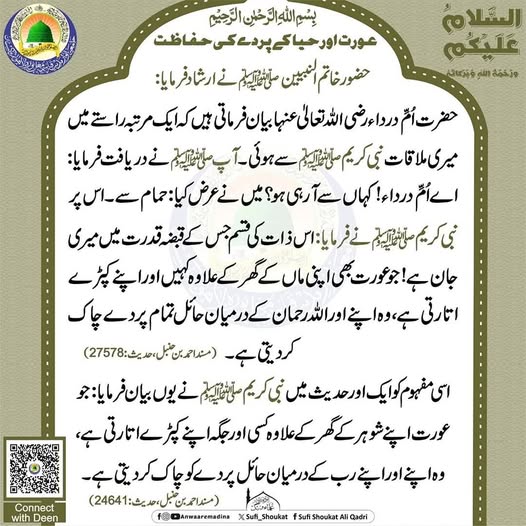 بِسْمِ اللهِ الرَّحْمٰنِ الرَّحِيْمِ
السَّلَامُ
عَلَيْكُم
وَرَحْمَةُ اللهِ وَبَرَكَاتُهُ
عورت اور حیا کے پردے کی حفاظت
حضور خاتم النبیین ﷺ نے ارشاد فرمایا:
حضرت اُمِّ درداء رضی اللہ تعالیٰ عنہا بیان فرماتی ہیں کہ ایک مرتبہ راستے میں
میری ملاقات نبی کریم ﷺ سے ہوئی۔ آپ ﷺ نے دریافت فرمایا:
اے اُمِّ درداء! کہاں سے آ رہی ہو؟ میں نے عرض کیا: حمام سے۔ اس پر
نبی کریم ﷺ نے فرمایا: اس ذات کی قسم جس کے قبضہ قدرت میں میری
جان ہے! جو عورت بھی اپنی ماں کے گھر کے علاوہ کہیں اور اپنے کپڑے
اتارتی ہے، وہ اپنے اور اللہ رحمان کے درمیان حائل تمام پردے چاک
کر دیتی ہے۔ (مسند احمد بن حنبل، حدیث: 27578)
اسی مفہوم کو ایک اور حدیث میں نبی کریم ﷺ نے یوں بیان فرمایا: جو
عورت اپنے شوہر کے گھر کے علاوہ کسی اور جگہ اپنے کپڑے اتارتی ہے،
وہ اپنے اور اپنے رب کے درمیان حائل پردے کو چاک کر دیتی ہے۔
(مسند احمد بن حنبل، حدیث: 24641)
Connect
with Deen
@Anwaaremadina Sufi_Shoukat Sufi Shoukat Ali Qadri